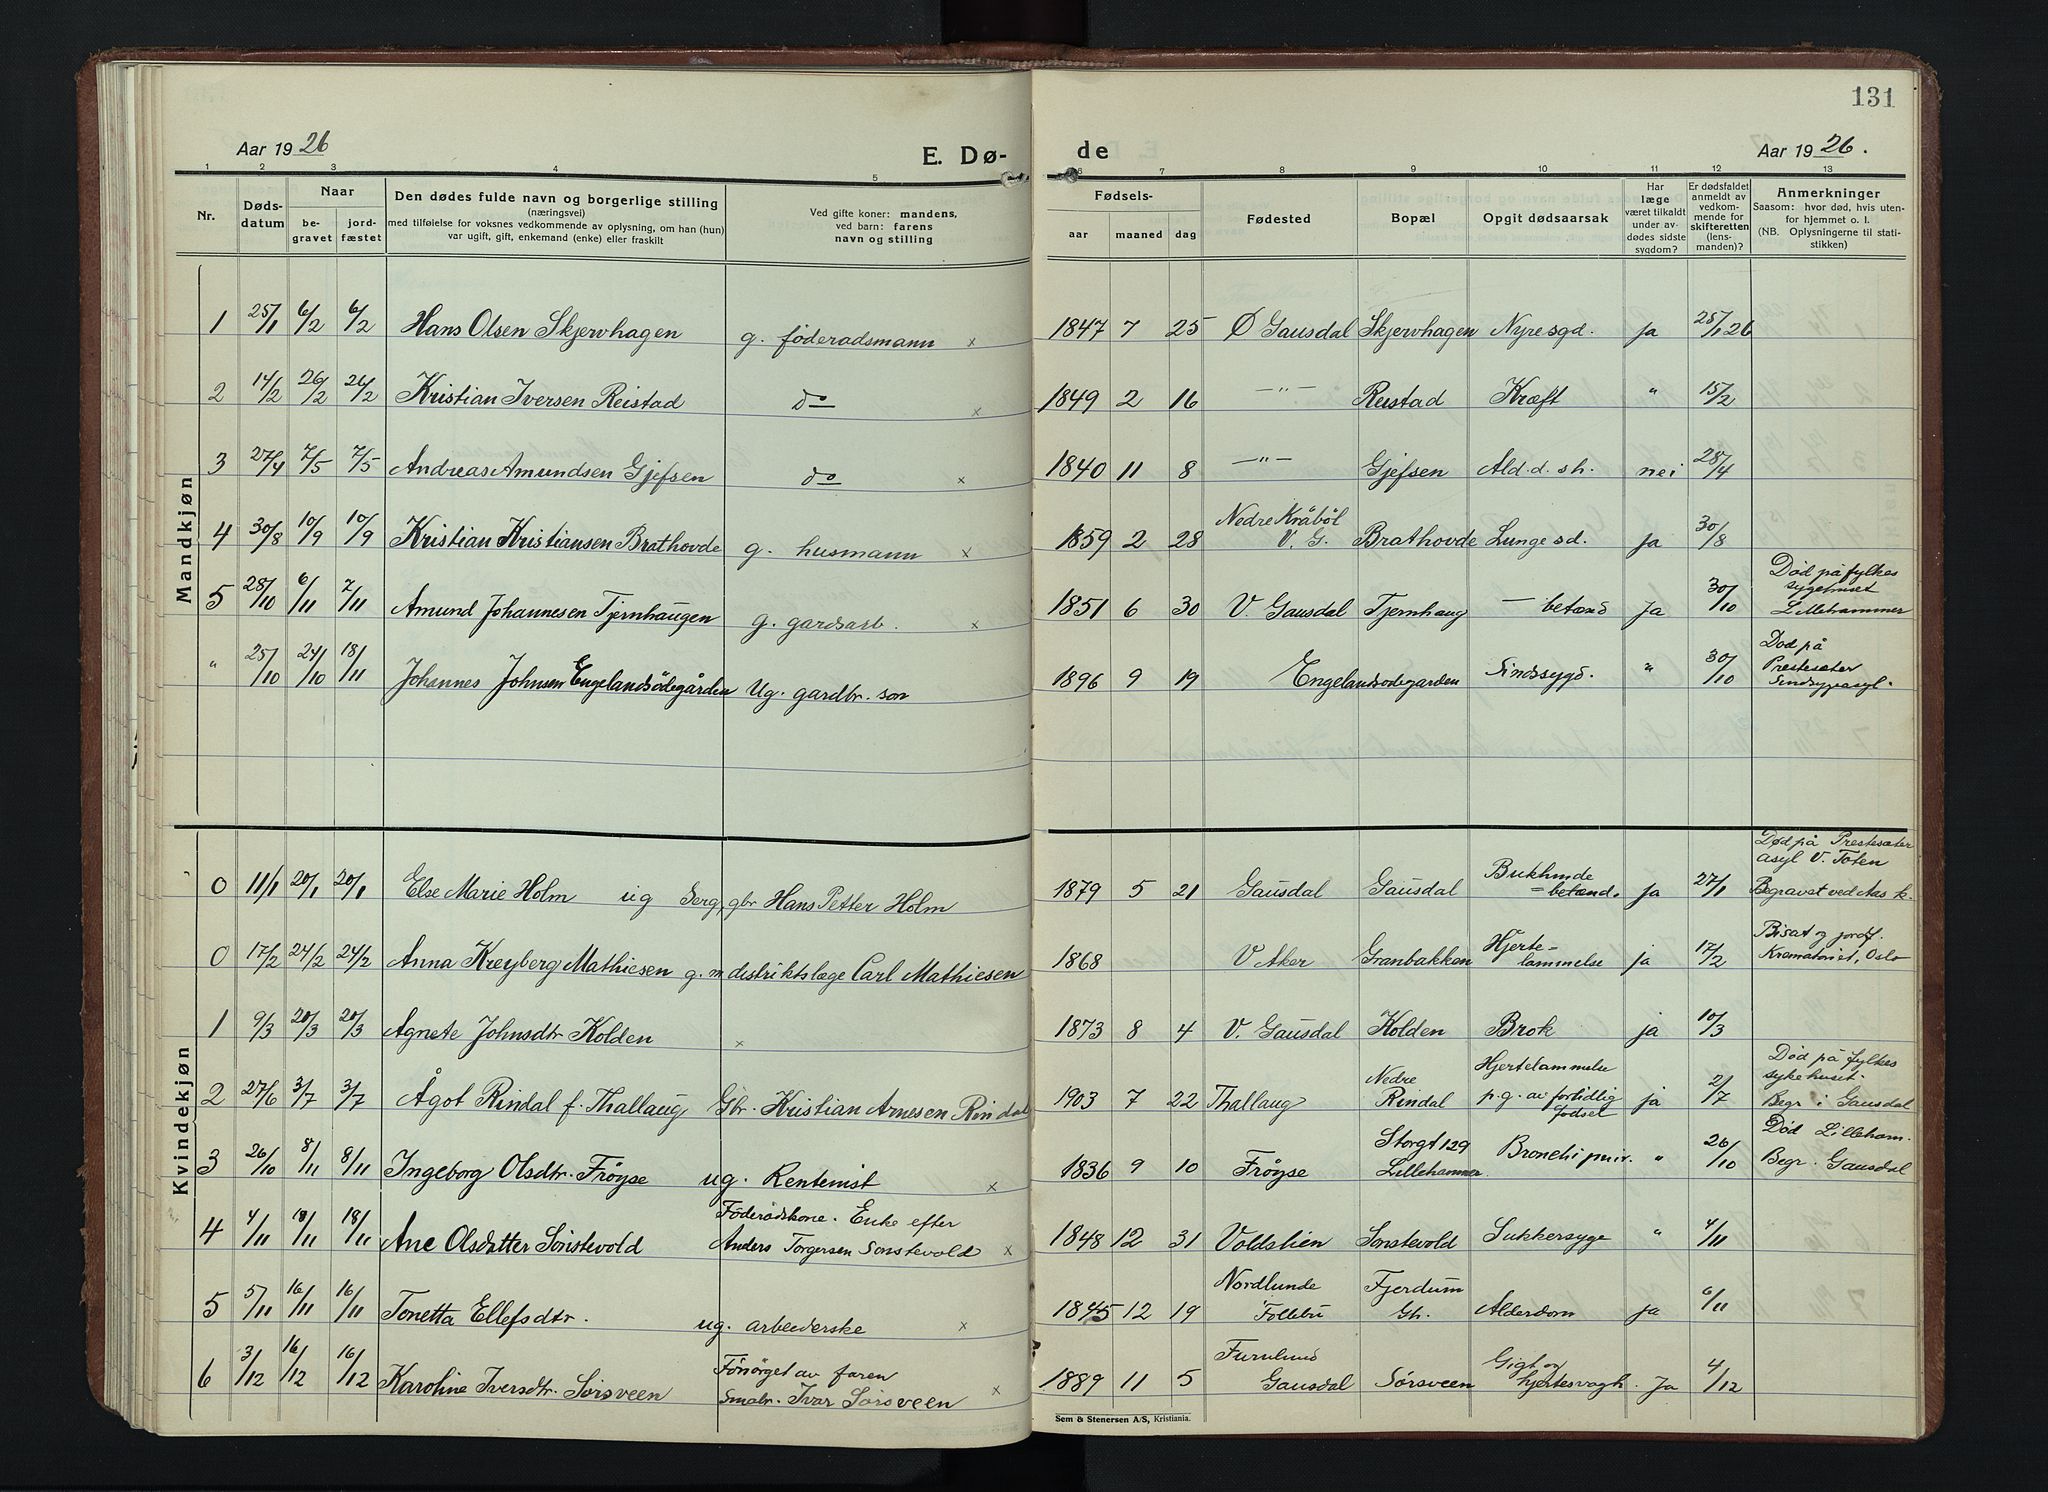 131
Aar 1926
E. Dø-
de
Aar 1926.
1 2 3 4 5 6 7 8 9 10 11 12 13
Nr. Døds-datum Naar be-gravet jord-fæstet
Den dødes fulde navn og borgerlige stilling
(næringsvei)
med tilføielse for voksnes vedkommende av oplysning, om han (hun)
var ugift, gift, enkemand (enke) eller fraskilt
Ved gifte koner: mandens,
ved barn: farens
navn og stilling
Fødsels-
aar maaned dag
Fødested
Bopæl
Opgit dødsaarsak
Har
læge
været tilkaldt
under av-
dødes sidste
sygdom?
Er dødsfaldet
anmeldt av
vedkom-
mende for
skifteretten
(lens-
manden)?
Anmerkninger
Saasom: hvor død, hvis uten-
for hjemmet o. l.
(NB. Oplysningerne til stati-
stikken)
Mandkjøn
1 25/1 6/2 6/2 Hans Olsen Skjervhagen g. föderadsmann x 1847 7 25 Ø Gausdal Skjervhagen Nyresgd. ja 25/1 26
2 14/2 26/2 26/2 Kristian Iversen Reistad do x 1849 2 16 —"— Reistad Kræft " 15/2
3 27/4 7/5 7/5 Andreas Amundsen Gjefsen do x 1840 11 8 —"— Gjefsen Ald.d. sh. nei 28/4
4 30/8 10/9 10/9 Kristian Kristiansen Brathovde g. husmann x 1859 2 28 Nedre Kråböl V. G. Brathovde Lunge sd. ja 30/8
5 28/10 6/11 7/11 Amund Johannesen Tjernhaugen g. gardsarb. x 1851 6 30 V. Gausdal Tjernhaug — betænd Ja 30/10 Död på fylkes sygehuset Lillehammer
" 25/10 24/10 18/11 Johannes Johnsen Engelandsödegården Ug. gardbr. son 1896 9 19 Engelandsodegarden Sindssygd. " 30/10 Dod på Prestesæter Sindsygeasyl.
Kvindekjøn
0 11/1 20/1 20/1 Else Marie Holm ug Serg, gbr Hans Petter Holm 1879 5 21 Gausdal Gausdal Bukhinde = betænd. ja 27/1 Død på Prestesæter asyl V. Toten Begravet ved Aas k.
0 17/2 24/2 24/2 Anna Kreyberg Mathiesen g. m distriktslæge Carl Mathiesen 1868 V Aker Granbakken Hjerte-lammelse ja 17/2 Bisat og jordf. Krematoriet, Oslo
1 9/3 20/3 20/3 Agnete Johnsdtr Kolden x 1873 8 4 V. Gausdal Kolden Brok ja 10/3
2 27/6 3/7 3/7 Ågot Rindal f. Thallaug Gbr. Kristian Arnesen Rindal 1903 7 22 Thallaug Nedre Rindal Hjertelammelse p.g. av fortidlig fødsel ja 2/7 Død på fylkes sykehuset. Begr i Gausdal
3 26/10 8/11 8/11 Ingeborg Olsdtr. Fröyse ug. Rentenist x 1836 9 10 Fröyse Storgt 129 Lillehammer " 26/10 Død Lilleham. Begr. Gausdal
4 4/11 18/11 18/11 Ane Olsdatter Sönstevold Föderådskone. Enke efter Anders Torgersen Sonstevold x 1848 12 31 Voldslien Sonstevold Sukkersyge " 4/11
5 5/11 16/11 16/11 Tonetta Ellefsdtr. ug. arbeiderske x 1845 12 19 Nordlunde Follebu Fjerdum Gh. Alderdom ja 6/11
6 3/12 16/12 16/12 Karoline Iversdtr. Sörsveen Försörget av faren Smabr. Ivar Sörsveen x 1889 11 5 Furulund Gausdal Sörsveen Gigt og hjertesvagh. Ja 4/12
Sem & Stenersen A/S, Kristiania.